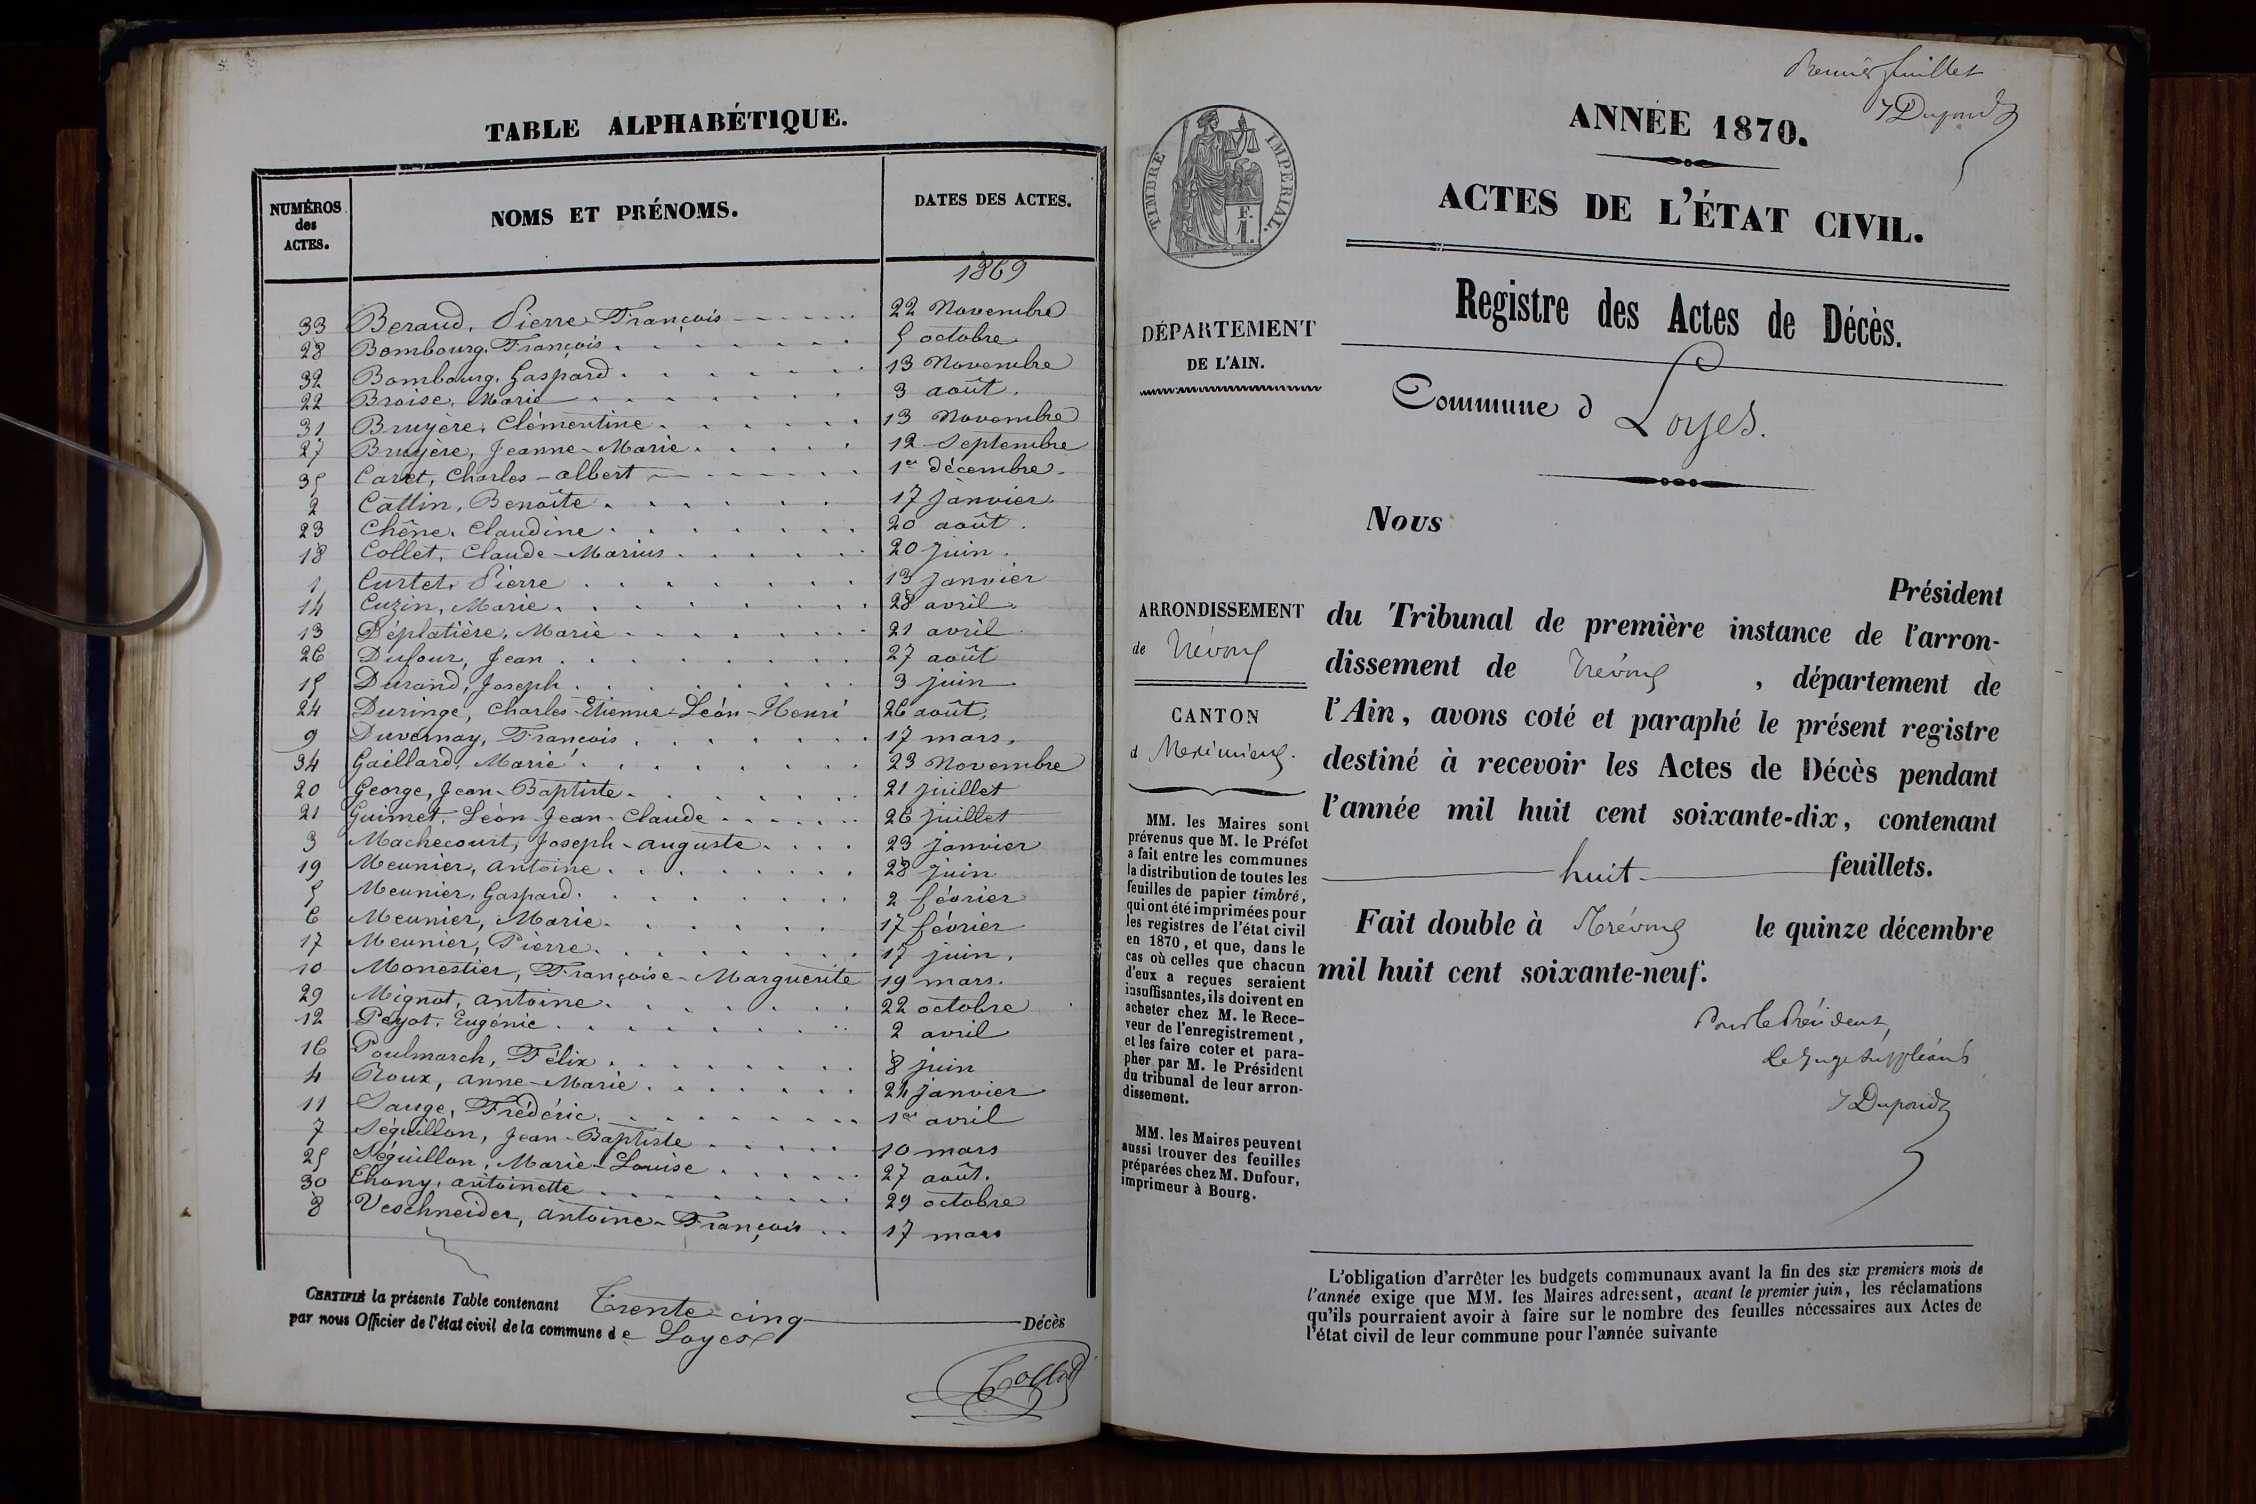 TABLE ALPHABÉTIQUE.
NUMÉROS des ACTES.
NOMS ET PRÉNOMS.
DATES DES ACTES.
1869
33 Beraud, Pierre François 22 Novembre
28 Bombourg, François 5 octobre
32 Bombourg, Gaspard 13 Novembre
22 Broise, Marie 3 août.
31 Bruyère, Clémentine 13 Novembre
27 Bruyère, Jeanne-Marie 12 Septembre
35 Caret, Charles-albert 1er décembre
2 Cattin, Benoîte 17 janvier
23 Chêne, Claudine 20 août.
18 Collet, Claude-Marius 20 juin.
1 Curtet, Pierre 13 janvier
14 Cuzin, Marie 28 avril
13 Déplatière, Marie 21 avril
26 Dufour, Jean 27 août
15 Durand, Joseph 3 juin
24 Duringe, Charles-Etienne-Léon-Henri 26 août
9 Duvernay, François 17 mars.
34 Gaillard, Marie 23 Novembre
20 George, Jean-Baptiste 21 juillet
21 Guimet, Léon-Jean-Claude 26 juillet
3 Machecourt, Joseph-auguste 23 janvier
19 Meunier, antoine 28 juin
5 Meunier, Gaspard 2 février
6 Meunier, Marie 17 février
17 Meunier, Pierre 17 juin.
10 Monestier, Françoise-Marguerite 19 mars.
29 Mignot, antoine 22 octobre
12 Peyot, Eugénie 2 avril
16 Poulmarch, Félix 8 juin
4 Roux, anne-Marie 24 janvier
11 Sauge, Frédéric 1er avril
7 Séguillon, Jean-Baptiste 10 mars
25 Séguillon, Marie-Louise 27 août.
30 Thony, antoinette 29 octobre
8 Veschneider, antoine-François 17 mars
CERTIFIÉ la présente Table contenant Trente cinq Décès
par nous Officier de l'état civil de la commune de Loyes
Collet
Premier feuillet
Dupond
TIMBRE IMPERIAL.
F.
1.
ANNÉE 1870.
ACTES DE L'ÉTAT CIVIL.
DÉPARTEMENT
DE L'AIN.
Registre des Actes de Décès.
Commune d Loyes.
Nous
Président
du Tribunal de première instance de l'arron-
dissement de Trévoux, département de
l'Ain, avons coté et paraphé le présent registre
destiné à recevoir les Actes de Décès pendant
l'année mil huit cent soixante-dix, contenant
huit feuillets.
Fait double à Trévoux le quinze décembre
mil huit cent soixante-neuf.
Pour le Président,
Le Juge Suppléant
Dupond
ARRONDISSEMENT
de Trévoux
CANTON
d Meximieux.
MM. les Maires sont
prévenus que M. le Préfet
a fait entre les communes
la distribution de toutes les
feuilles de papier timbré,
qui ont été imprimées pour
les registres de l'état civil
en 1870, et que, dans le
cas où celles que chacun
d'eux a reçues seraient
insuffisantes, ils doivent en
acheter chez M. le Rece-
veur de l'enregistrement,
et les faire coter et para-
pher par M. le Président
du tribunal de leur arron-
dissement.
MM. les Maires peuvent
aussi trouver des feuilles
préparées chez M. Dufour,
imprimeur à Bourg.
L'obligation d'arrêter les budgets communaux avant la fin des six premiers mois de
l'année exige que MM. les Maires adressent, avant le premier juin, les réclamations
qu'ils pourraient avoir à faire sur le nombre des feuilles nécessaires aux Actes de
l'état civil de leur commune pour l'année suivante